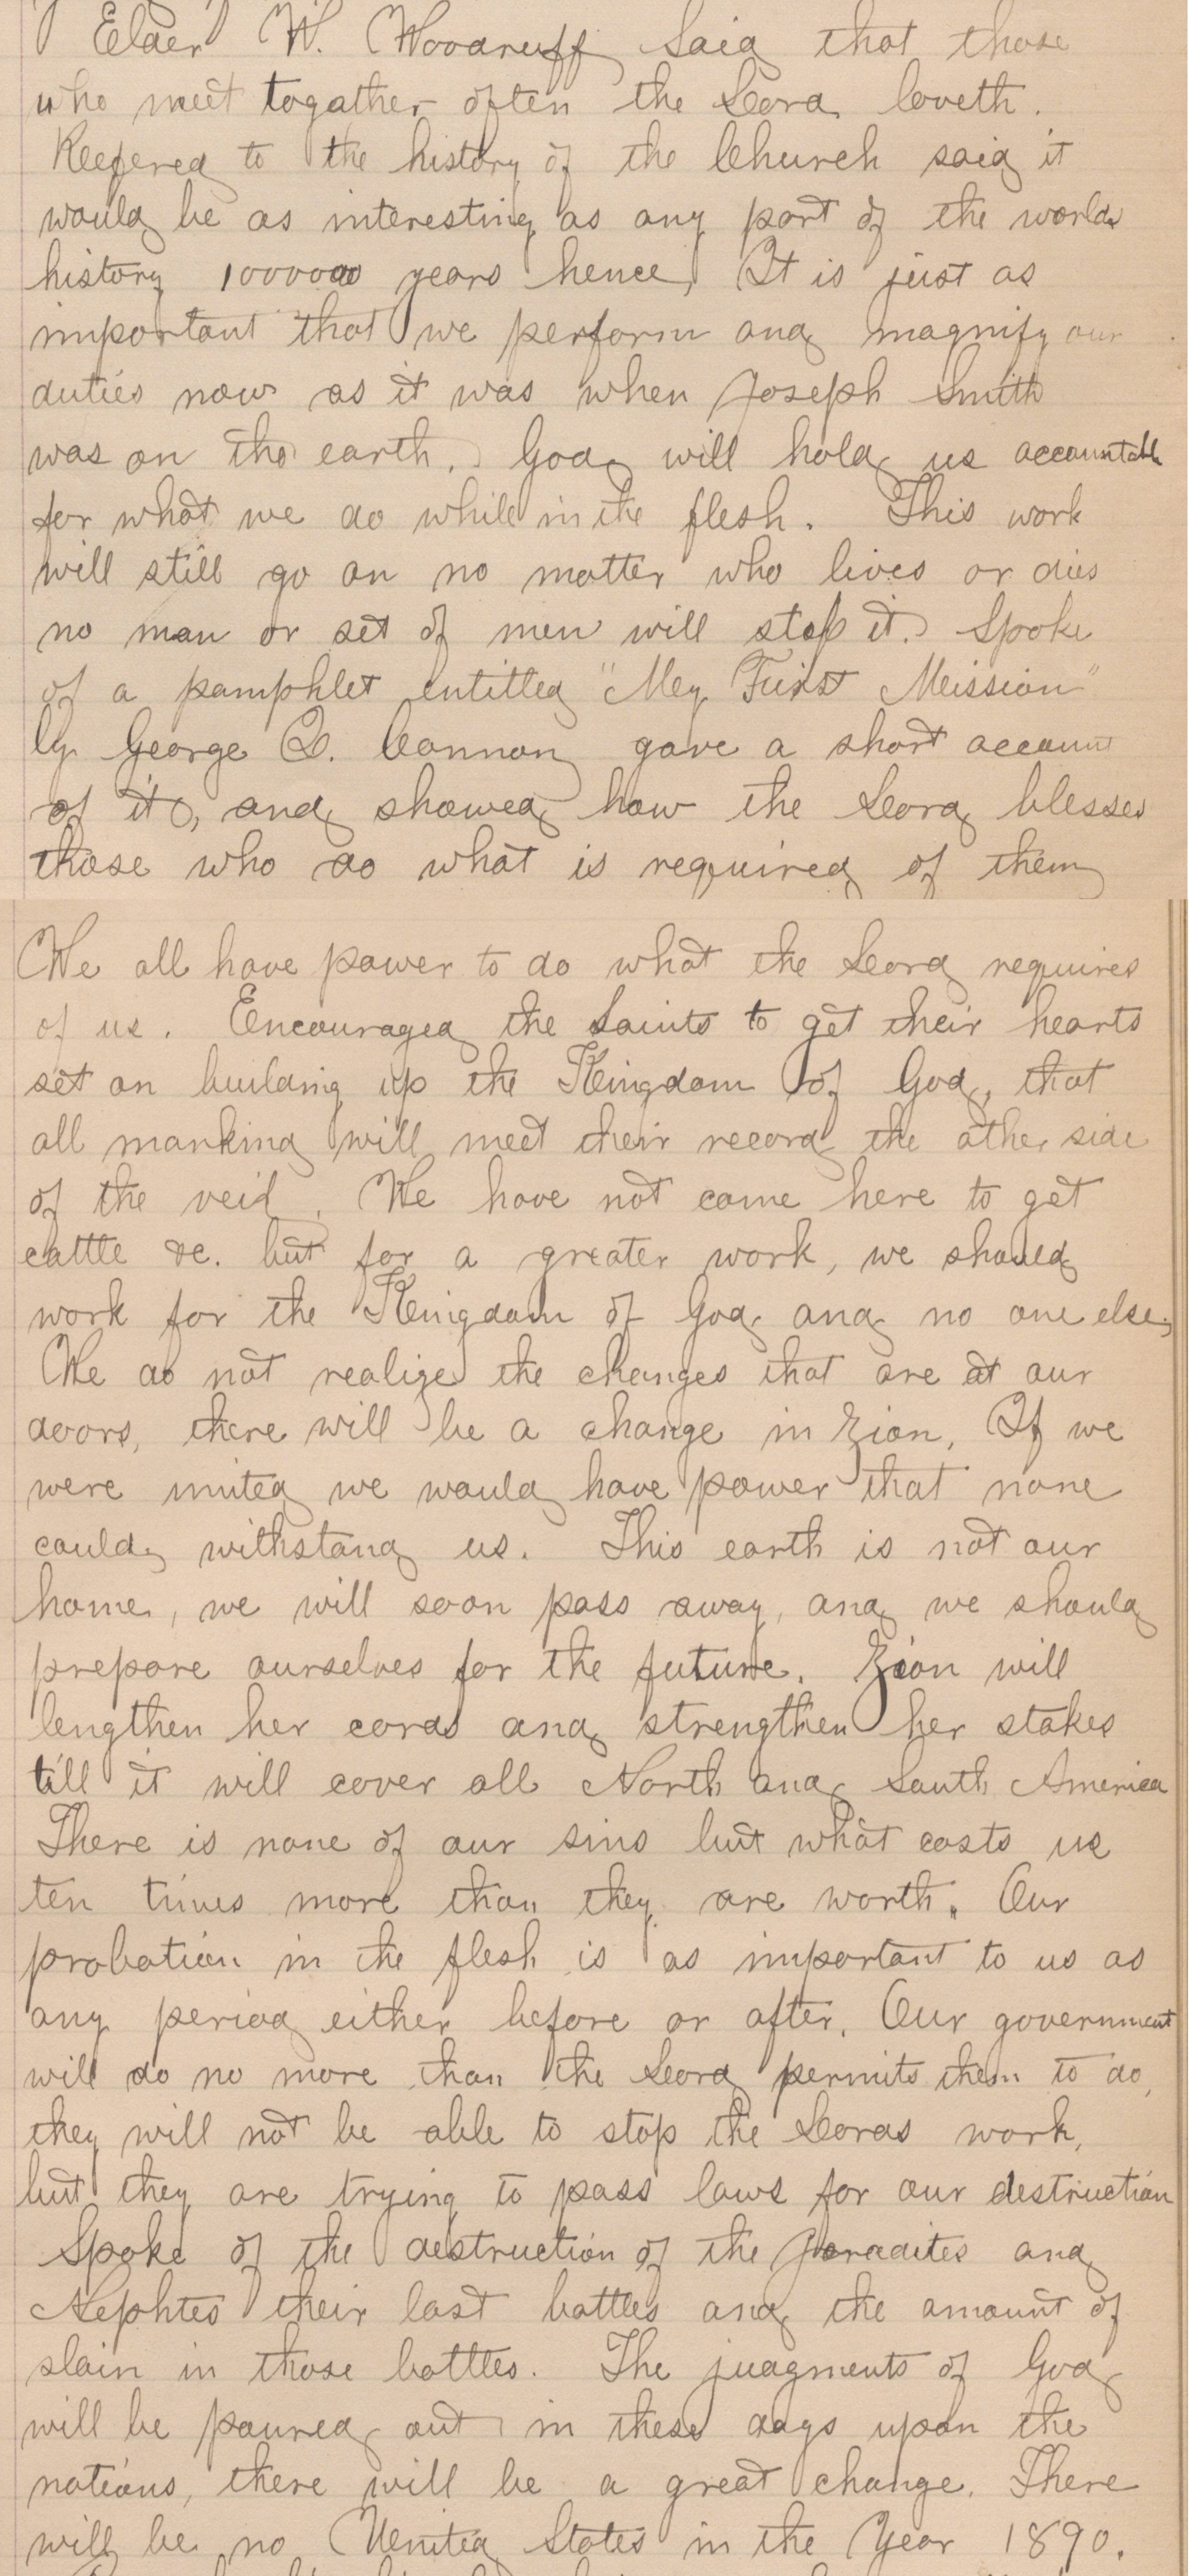 Elder W. Woodruff said that those
who meet togather often the Lord loveth.
Reefered to the history of the Church said it
would be as interesting as any part of the worlds
history 1000000 years hence, It is just as
important that we perform and magnify our
duties now as it was when Joseph Smith
was on the earth. God will hold us accountable
for what we do while in the flesh. This work
will still go on no matter who lives or dies
no man or set of men will stop it. Spoke
of a pamphlet entitled "My First Mission"
by George Q. Cannon gave a short account
of it, and showed how the Lord blesses
those who do what is required of them
We all have power to do what the Lord requires
of us. Encouraged the Saints to get their hearts
set on building up the Kingdom of God, that
all mankind will meet their record the other side
of the veil. We have not come here to get
cattle &c. but for a greater work, we should
work for the Kingdom of God and no one else,
We do not realize the changes that are at our
doors, there will be a change in Zion, If we
were united we would have power that none
could withstand us. This earth is not our
home, we will soon pass away, and we should
prepare ourselves for the future. Zion will
lengthen her cords and strengthen her stakes
till it will cover all North and South America
There is none of our sins but what costs us
ten times more than they are worth. Our
probation in the flesh is as important to us as
any period either before or after. Our government
will do no more than the Lord permits them to do,
they will not be able to stop the Lords work,
but they are trying to pass laws for our destruction
Spoke of the destruction of the Jaradites and
Nephtes their last battles and the amount of
slain in those battles. The judgments of God
will be poured out in these days upon the
nations, there will be a great change. There
will be no United States in the Year 1890.